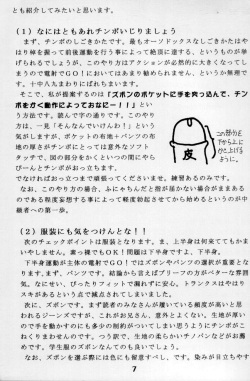 とも紹介してみたいと思います。
(1)なにはともあれチンポいじりましょう
まず、チンポのしごきかたです。最もオーソドックスなしごきかたはやはり棹を握って前後運動を行う事によって絶頂に達する、というものが挙げられるでしょうが、このやり方はアクションが必然的に大きくなってしまうので電射でGO!においてはあまり勧められません、というか無理です。十中八九まわりにばれちまいます。
そこで、私が提案するのは『ズボンのポケットに手を突っ込んで、チンポをかく動作によっておなにー!!』という方法です。読んで字の通りです。このやり方は、一見「そんなんでいけんわ!」という気がしますが、ポケットの布地+パンツの布地の厚さがチンポにとっては意外なソフトタッチで、図の部分をかくといつの間にやらびーんとチンポがおっ立ちます。
でなければおっ立つまで頑張ってくださいませ。練習あるのみです。
なお、このやり方の場合、ふにゃちんだと指が届かない場合がままあるのである程度妄想する事によって軽度勃起させてから始めるというのが中級者への第一歩。
この部分を
下から上に
かき上げる
ように。
皮
(2)服装にも気をつけんとな!!
次のチェックポイントは服装となります。ま、上半身は何来ててもかまいやしません。素っ裸でもOK!問題は下半身ですよ、下半身。
下半身運動が主体の電射でGO!ではズボンやパンツの選択が重要となります。まず、パンツです。結論から言えばブリーフの方がベターな雰囲気。なにせい、ぴったりフィットで漏れずに安心。トランクスはやはりスキがあるという点で減点されてしまいました。
次に、ズボンです。まず読者のみなさんが履いている頻度が高いと思われるジーンズですが、これがお兄さん、意外とよくない。生地が厚いので手を動かすのにも多少の制約がついてしまい思うようにチンポがこねくりまわせんのです。つう訳で、生地の柔らかいチノパンなどがお薦めです。学生服のズボンなんてのも良いでしょう。
なお、ズボンを選ぶ際には色にも留意すべし、です。染みが目立ちやす
7